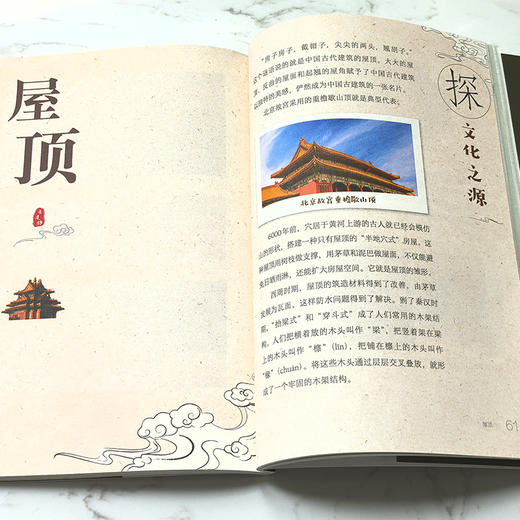 屋
顶
"房子房子，戴帽子，尖尖的两头，翘胡子。"
这个谜语说的就是中国古代建筑的屋顶。大大的屋
顶、反曲的屋面和起翘的屋角赋予了中国古代建筑
以独特的美感，俨然成为中国古建筑的一张名片。
北京故宫采用的重檐歇山顶就是典型代表。
探
文化之源
北京故宫重檐歇山顶
6000年前，穴居于黄河上游的古人就已经会模仿
山的形状，搭建一种只有屋顶的"半地穴式"房屋。这
种屋顶用树枝做支撑，用茅草和泥巴做屋面，不仅能避
免日晒雨淋，还能扩大房屋空间。它就是屋顶的雏形。
西周时期，屋顶的筑造材料得到了改善，由茅草
发展为瓦面，这样防水问题得到了解决。到了秦汉时
期，"抬梁式"和"穿斗式"成了人们常用的木架结
构。人们把横着放的木头叫作"梁"，把竖着架在梁
上的木头叫作"檩"（lǐn），把铺在檩上的木头叫作
"椽"（chuán）。将这些木头通过层层交叉叠放，就形
成了一个牢固的木架结构。
屋顶
61